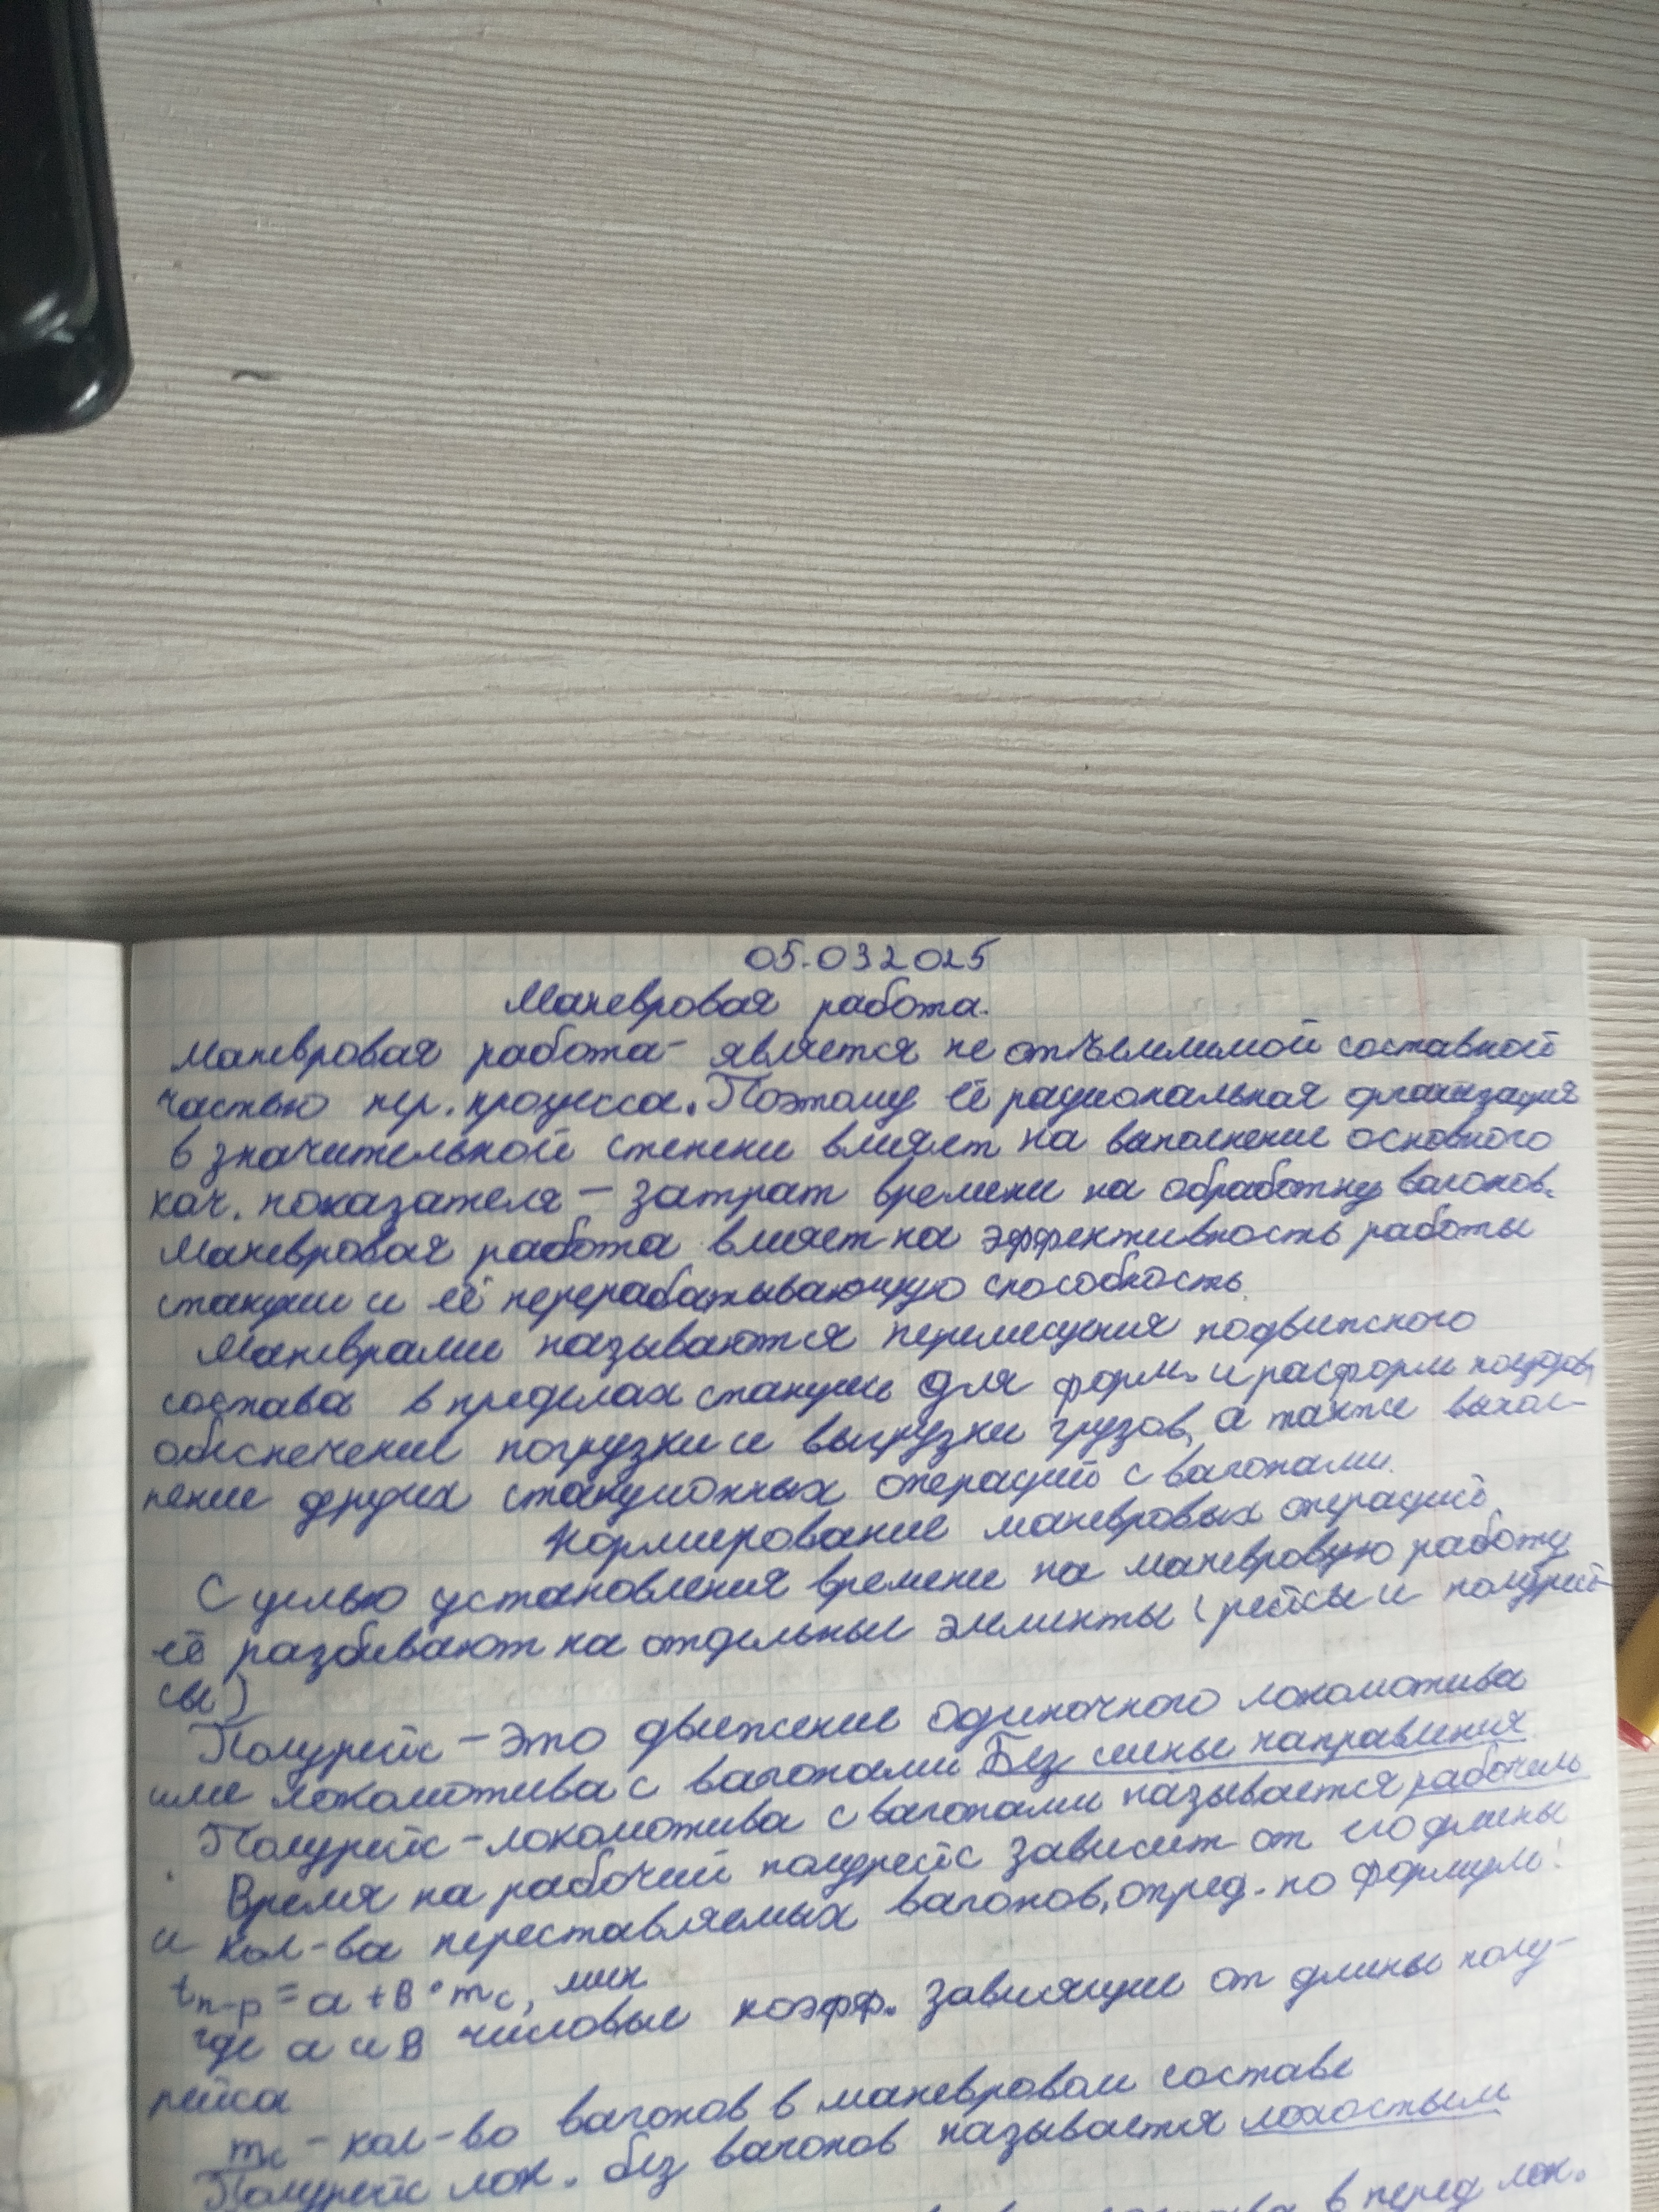 05.032025
Маневровая работа.
Маневровая работа - является не отъемлимой составной
частью пер. процесса. Поэтому её рациональная организация
в значительной степени влияет на выполнение основного
кач. показателя - затрат времени на обработку вагонов.
Маневровая работа влияет на эффективность работы
станции и её перерабатывающую способность.
Маневрами называются перемещения подвижного
состава в пределах станции для форм. и расформ поездов,
обеспечение погрузки и выгрузки грузов, а также выпол-
нение других станционных операций с вагонами.
Нормирование маневровых операций.
С целью установления времени на маневровую работу
её разбивают на отдельные элементы (рейсы и полурей-
сы)
Полурейс - это движение одиночного локомотива
или локомотива с вагонами Без смены направления
Полурейс - локомотива с вагонами называется рабочим
Время на рабочий полурейс зависит от его длины
и кол-ва переставляемых вагонов, опред. по формуле:
tп-р = а + в · mс, мин
где а и в числовые коэфф. зависящие от длины полу-
рейса
mс - кол-во вагонов в маневровом составе
Полурейс лок. без вагонов называется холостым
в перед лок.